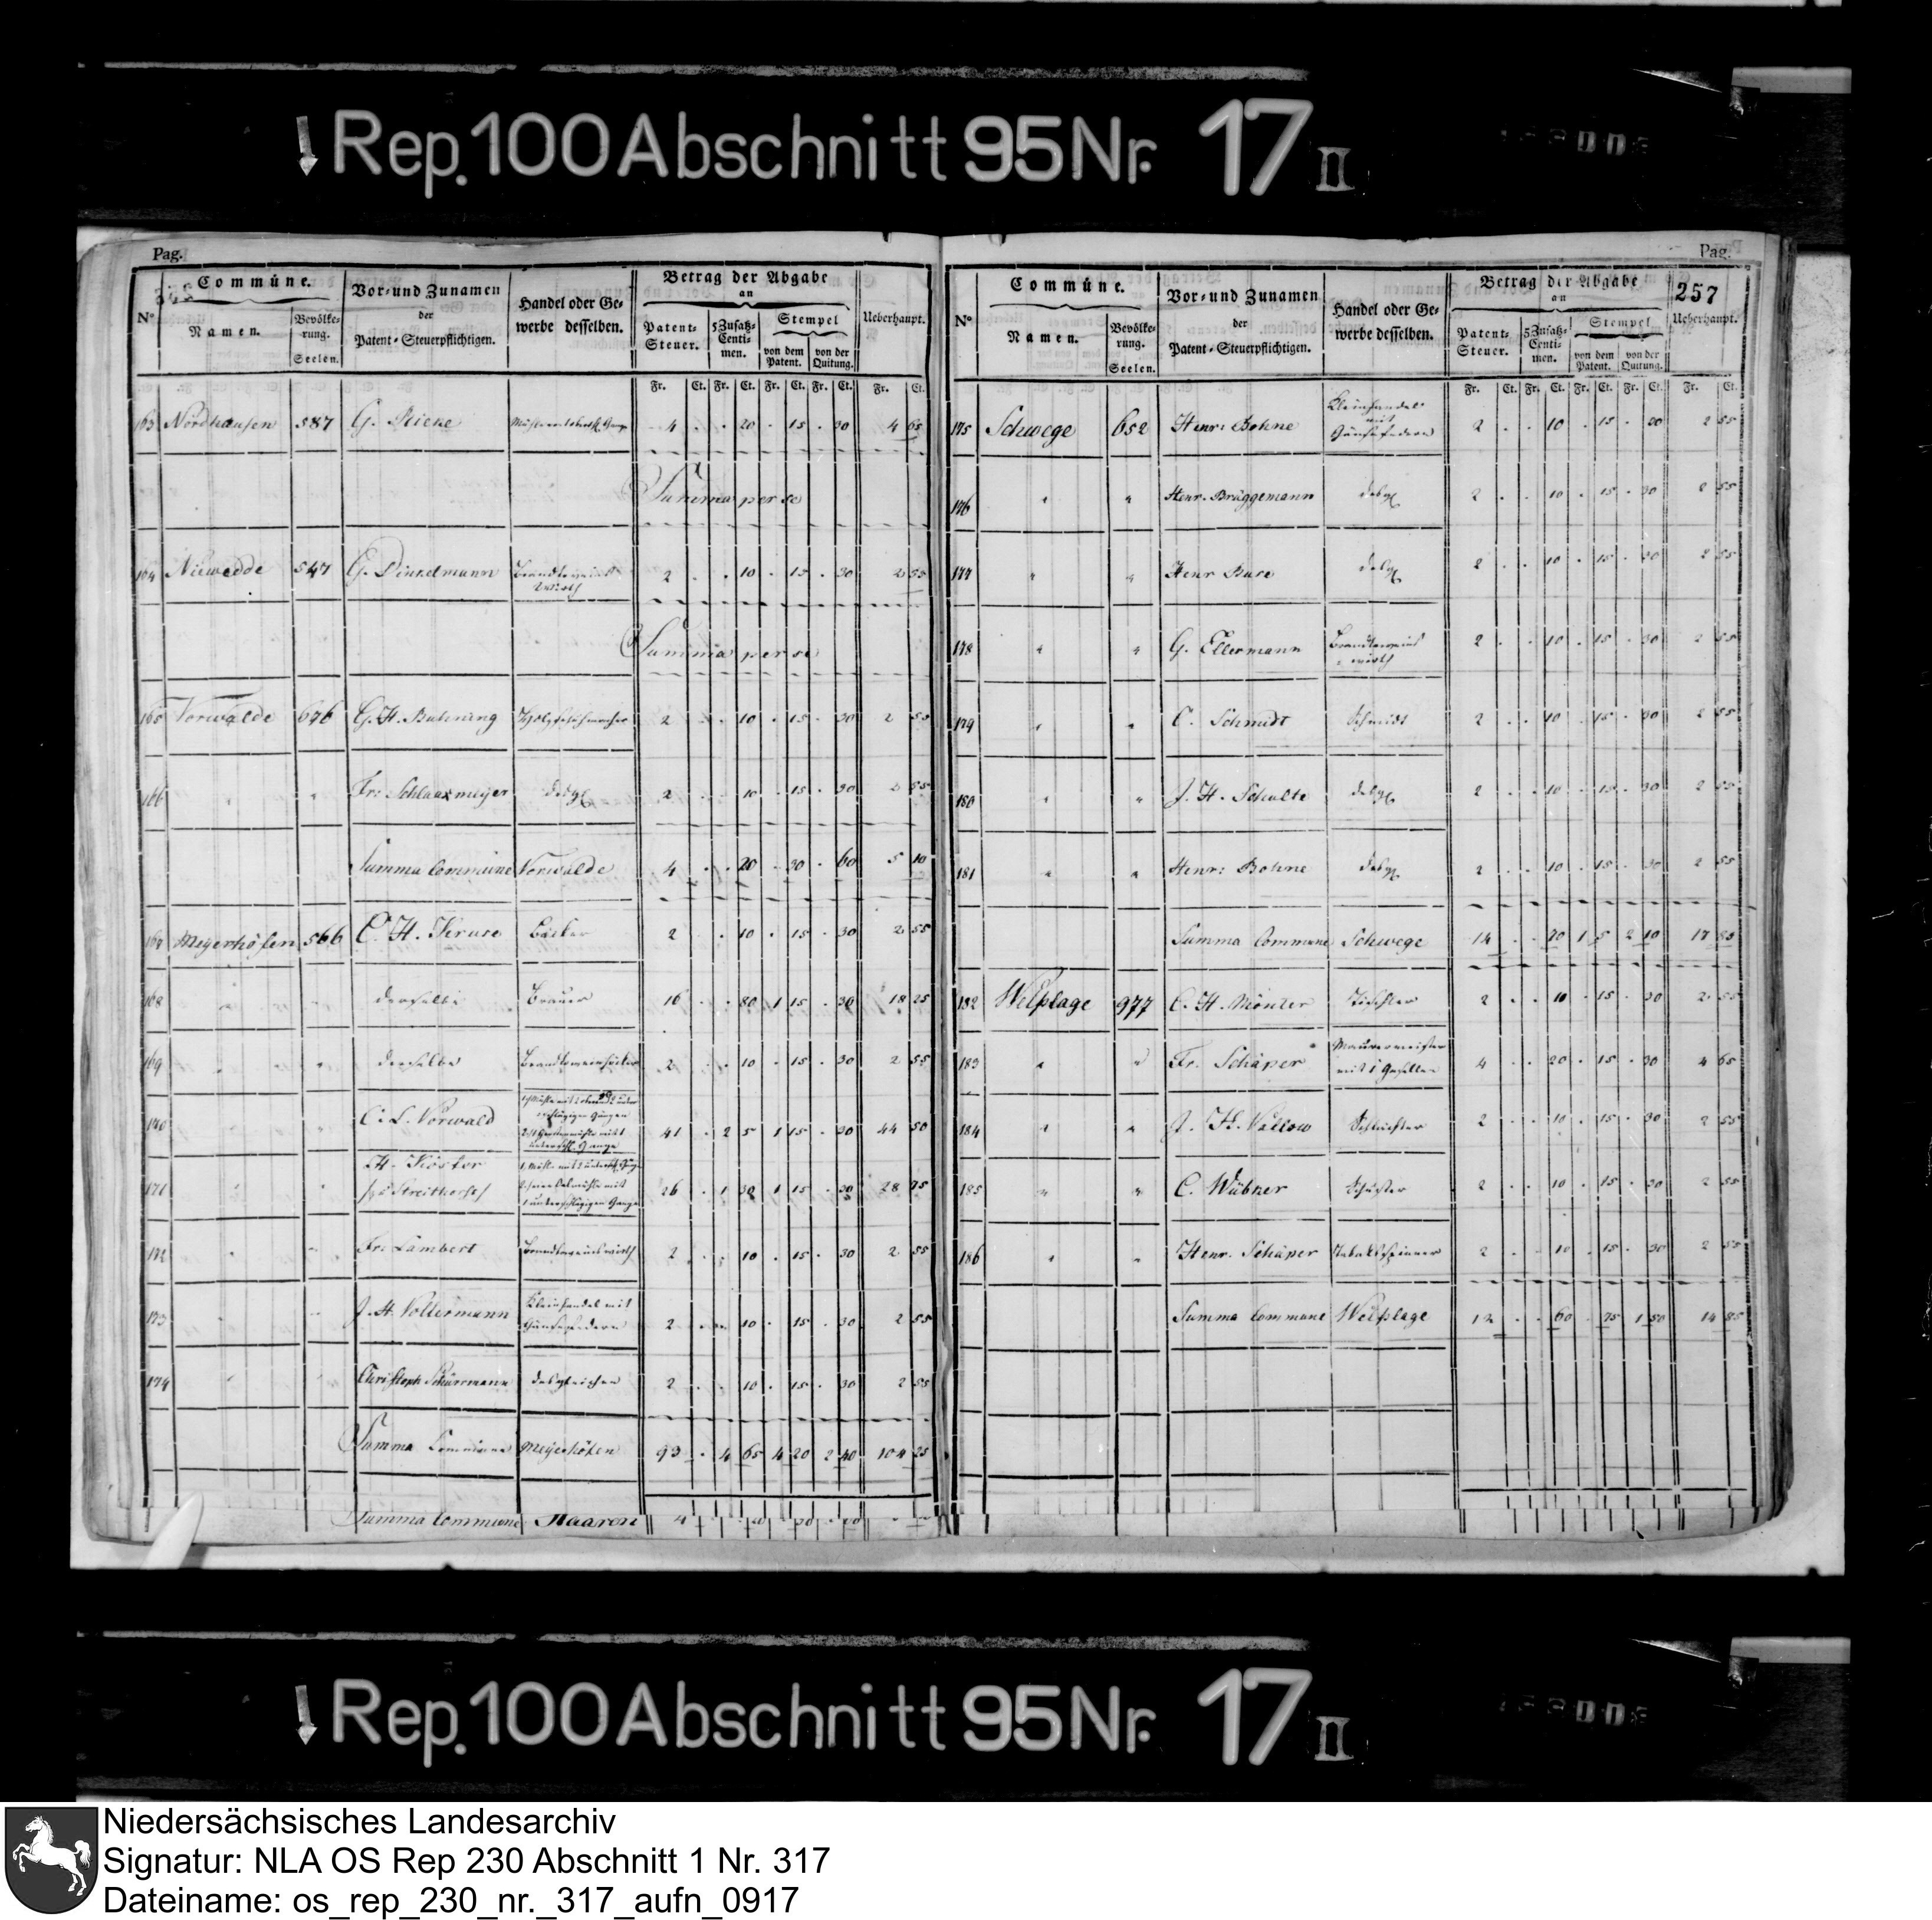 Rep. 100 Abschnitt 95 Nr. 17 II
Pag.
Commüne.
Vor- und Zunamen
der
Patent-Steuerpflichtigen.
Handel oder Ge-
werbe desselben.
Betrag der Abgabe
an
Ueberhaupt.
No
Namen.
Bevölke-
rung.
Seelen.
Patent-
Steuer.
5 Zusatz-
Centi-
men.
Stempel
von dem
Patent.
von der
Quitung.
Fr. Ct. Fr. Ct. Fr. Ct. Fr. Ct. Fr. Ct.
163 Nordhausen 587 G. 4 . . 20 . 15 . 30 4 65
Summa per se
164 Niewedde 547 G. Dinkelmann Brandtweins
wirth 2 . . 10 . 15 . 30 2 55
Summa per se
165 Vorwalde 676 G. H. Buhning 2 . . 10 . 15 . 30 2 55
166 " " Fr: 2 . . 10 . 15 . 30 2 55
Summa Commüne Vorwalde 4 . . 20 . 30 . 60 5 10
167 Meyerhöfen 566 C. H. Kruse Bäcker 2 . . 10 . 15 . 30 2 55
168 " " derselbe Brauer 16 . . 80 1 15 . 30 18 25
169 " " derselbe 2 . . 10 . 15 . 30 2 55
170 " " C. L. Vorwald 41 . 2 5 1 15 . 30 44 50
171 " " H. Köster 26 . 1 30 1 15 . 30 28 75
172 " " Fr: Lambert Brandtweinswirth 2 . . 10 . 15 . 30 2 55
173 " J. H. Voltermann Kleinhandel mit
Gänsefedern 2 . . 10 . 15 . 30 2 55
174 " " Christoph Schürmann desgleichen 2 . . 10 . 15 . 30 2 55
Summa Commüne Meyerhöfen 93 . 4 65 4 20 2 40 104 25
Summa Commüne Haaren 4
Pag.
257
Commüne.
Vor- und Zunamen
der
Patent-Steuerpflichtigen.
Handel oder Ge-
werbe desselben.
Betrag der Abgabe
an
Ueberhaupt.
No
Namen.
Bevölke-
rung.
Seelen.
Patent-
Steuer.
5 Zusatz-
Centi-
men.
Stempel
von dem
Patent.
von der
Quitung.
Fr. Ct. Fr. Ct. Fr. Ct. Fr. Ct. Fr. Ct.
175 Schwege 652 Henr: Bohne Kleinhandel
mit
Gänsefedern 2 . . 10 . 15 . 30 2 55
176 " " Henr. Brüggemann desgl 2 . . 10 . 15 . 30 2 55
177 " " Henr Buse desgl 2 . . 10 . 15 . 30 2 55
178 " " G. Ellermann Brandtweins
wirth 2 . . 10 . 15 . 30 2 55
179 " " C. Schmidt Schmidt 2 . . 10 . 15 . 30 2 55
180 " " J. H. Schulte desgl 2 . . 10 . 15 . 30 2 55
181 " " Henr: Bohne desgl 2 . . 10 . 15 . 30 2 55
Summa Commune Schwege 14 . . 70 1 5 2 10 17 85
182 Welplage 977 C. H. Mönter Tischler 2 . . 10 . 15 . 30 2 55
183 " " Fr. Schäper Maurermeister
mit 1 Gesellen 4 . . 20 . 15 . 30 4 65
184 " " J. H. Schlachter 2 . . 10 . 15 . 30 2 55
185 " " C. Wübker Schuster 2 . . 10 . 15 . 30 2 55
186 " " Henr. Schäper Tabakspinner 2 . . 10 . 15 . 30 2 55
Summa Commune Welplage 12 . . 60 . 75 1 50 14 85
Rep. 100 Abschnitt 95 Nr. 17 II
Niedersächsisches Landesarchiv
Signatur: NLA OS Rep 230 Abschnitt 1 Nr. 317
Dateiname: os_rep_230_nr._317_aufn_0917